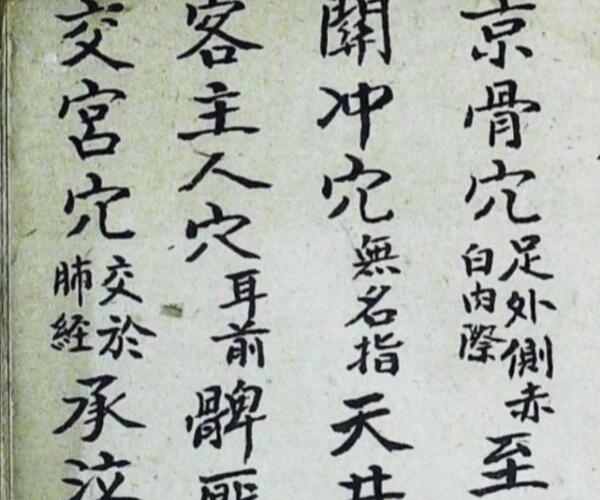 京骨穴足外側赤白肉際至
關冲穴無名指天井
客主人穴耳前髀
交宮穴交於肺経承